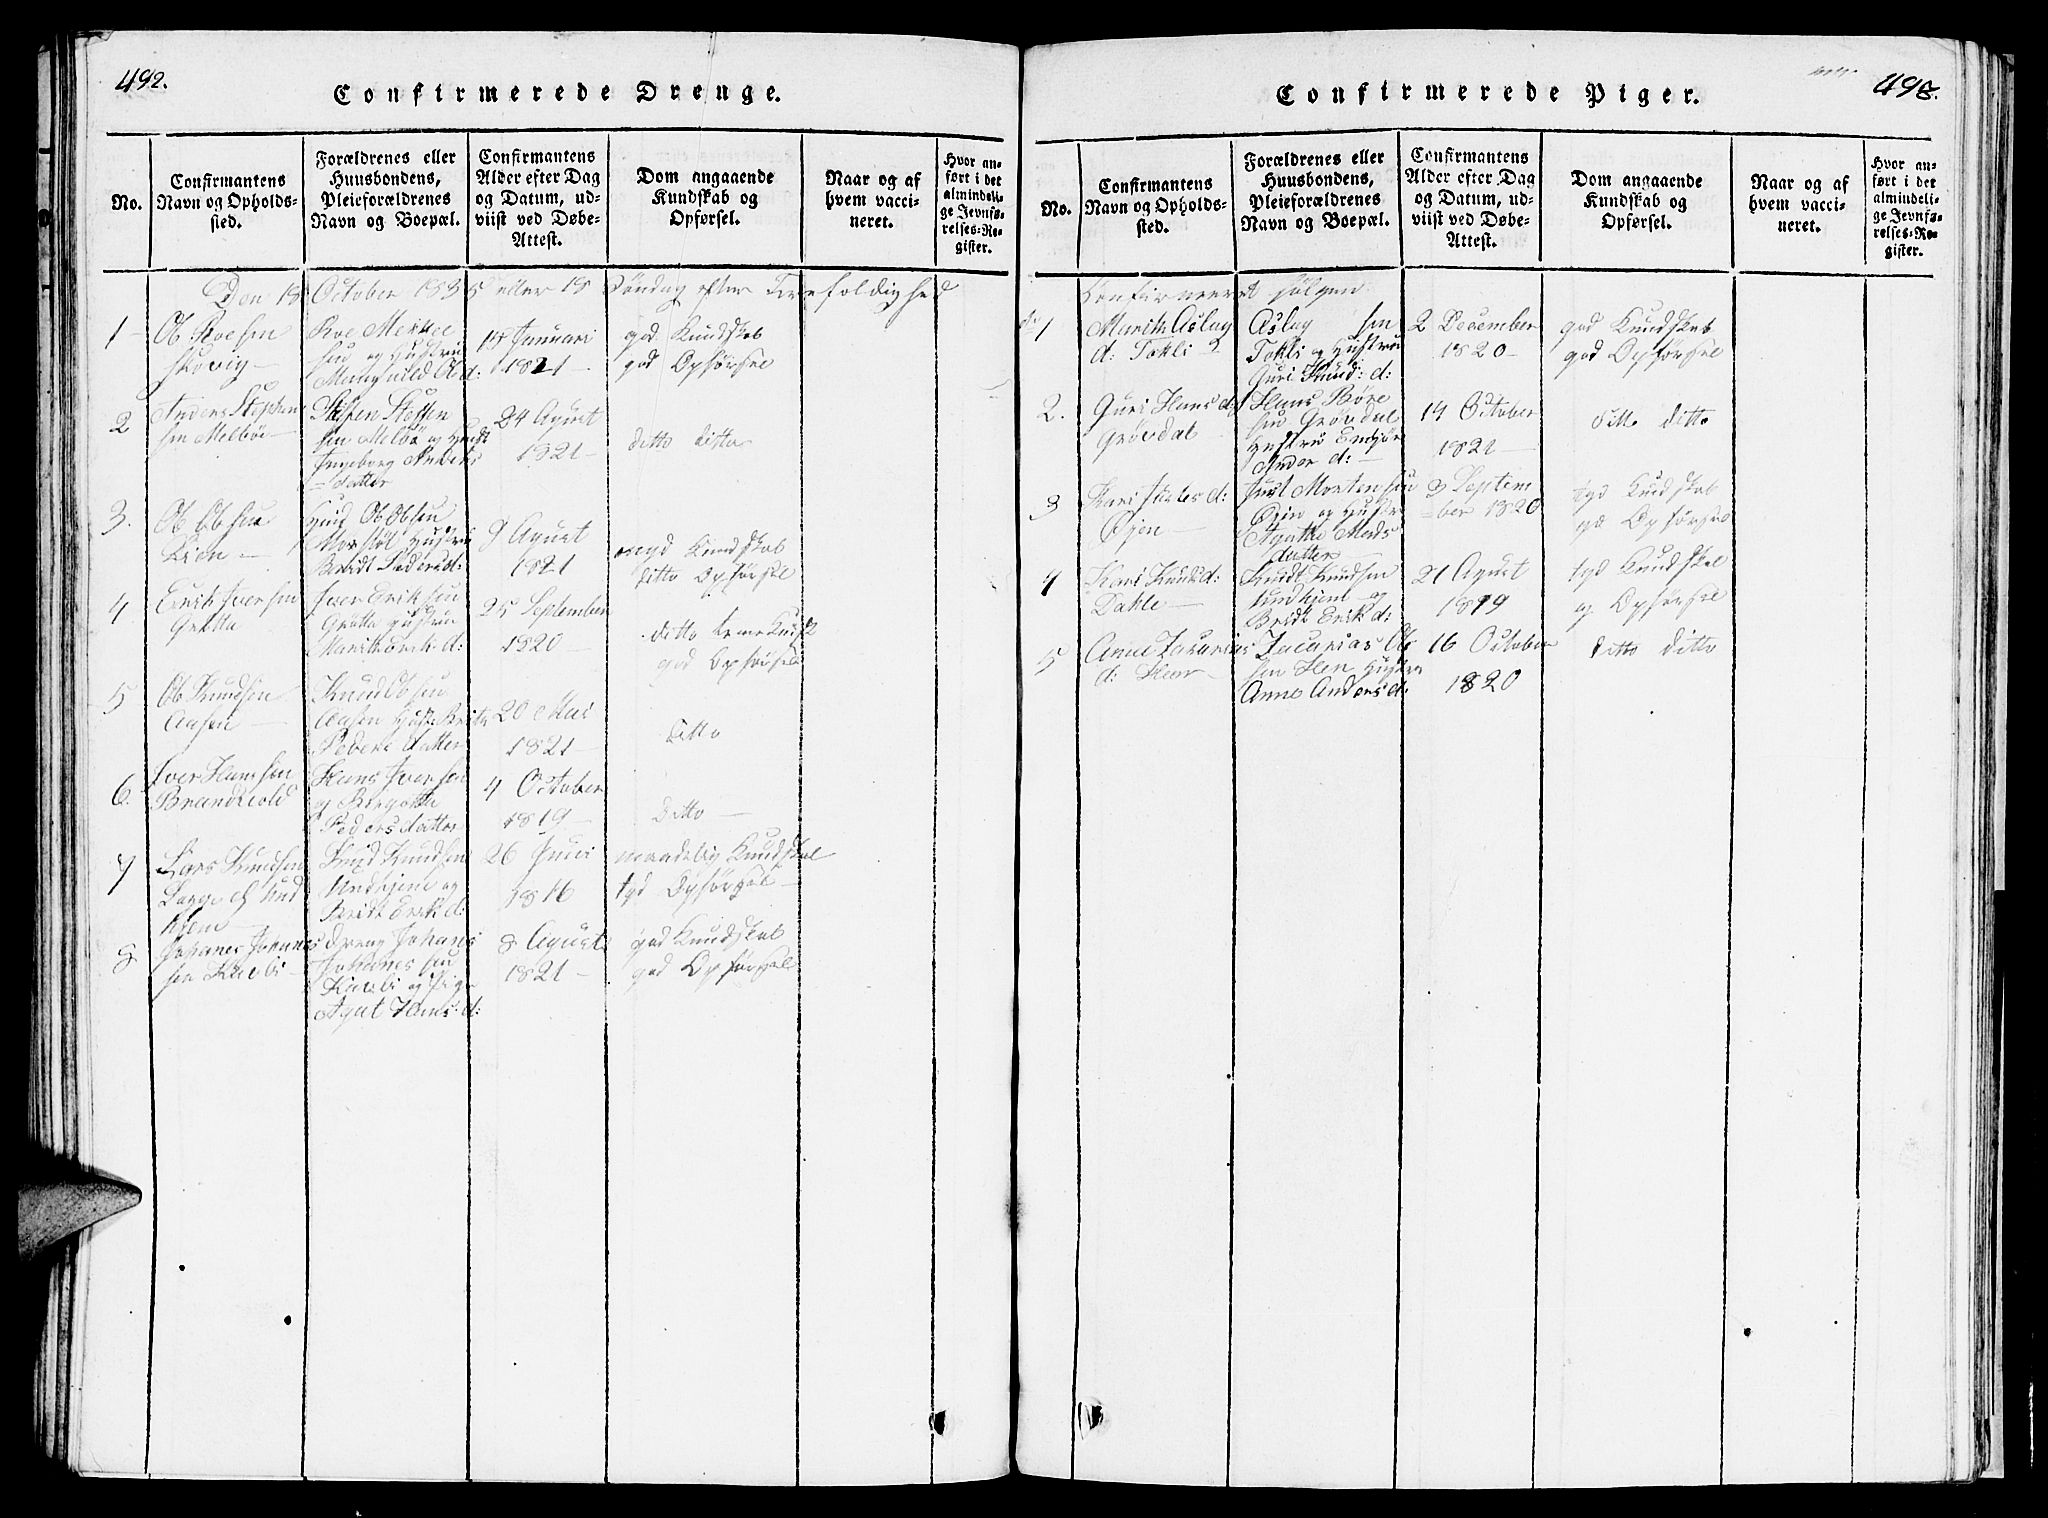 492.
Confirmerede Drenge.
No.
Confirmantens
Navn og Opholds-
sted.
Forældrenes eller
Huusbondens,
Pleieforældrenes
Navn og Boepæl.
Confirmantens
Alder efter Dag
og Datum, ud-
viist ved Døbe-
Attest.
Dom angaaende
Kundskab og
Opførsel.
Naar og af
hvem vacci-
neret.
Hvor an-
ført i det
almindeli-
ge Jevnfø-
relses-Re-
gister.
Den 18 October 1835 eller 18 Søndag efter Trefoldighed
1
Ob Roesen
Skovig
Roe
sen og Hustru
Januari
1821
god Kundskab
god Opførsel
2
Anders Stephen
sen Melbøe
Steffen Steffen
sen Melbø og Hust
Ingeborg Anders
datter
24 Agust
1821
ditto ditto
3.
Ob Obsen
Lien
Knud Ob Obsen
Hustru
Beridt Peders d:
9 Agust
1821
Kundskab
ditto Opførsel
4
Erik Iversen
Grøtta
Iver Eriksen
Grøtta Hustru
25 September
1820
ditto
god Opførsel
5
Ob Knudsen
Aasen
Knud Obsen
Aasen Hust: Brite
Peders datter
20 Mai
1821
ditto
6.
Iver Hansen
Hans Iversen
og
Pedersdatter
4 October
1819
Ditto
7
Lars Knudsen
Knud Knudsen
Undhjem og
Beridt Erik d:
26 Juni
1816
maadelig Kundskab
tgd Opførsel
8
Johanes Johannes
sen
dreng Johanes
Johanes sen
og Pige
Agat Hans: d:
8 Agust
1821
god Kundskab
god Opførsel
493.
Confirmerede Piger.
No.
Confirmantens
Navn og Opholds-
sted.
Forældrenes eller
Huusbondens,
Pleieforældrenes
Navn og Boepæl.
Confirmantens
Alder efter Dag
og Datum, ud-
viist ved Døbe-
Attest.
Dom angaaende
Kundskab og
Opførsel.
Naar og af
hvem vacci-
neret.
Hvor an-
ført i det
almindeli-
ge Jevnfø-
relses-Re-
gister.
Confirmeret følgen
1
Marith Aslag
d: Tokli
Aslag sen
Tokli og Hustru
Guri Knud: d:
2 December
1820
god Kundskab
god Opførsel
2.
Guri Hans d:
Grøvdal
Hans Børe
sen Grøvdal
Hustru
Ander d:
14 October
1821
ditto ditto
3
Kari Justes d:
Øjen
Just Mortensen
Øien og Hustru
Agathe Mads
datter
3 Septem
ber 1820
tgd Kundskab
Opførsel
4
Kari Knuds d:
Dahle
Knudt Knudsen
Undhjem og
Bridt Erik d:
21 Agust
1819
tgd Kundskab
g. Opførsel
5
Anne Zacarias
d: Hen
Zacarias Ob
sen Hen Hustru
Anne Anders d:
16 October
1820
ditto ditto